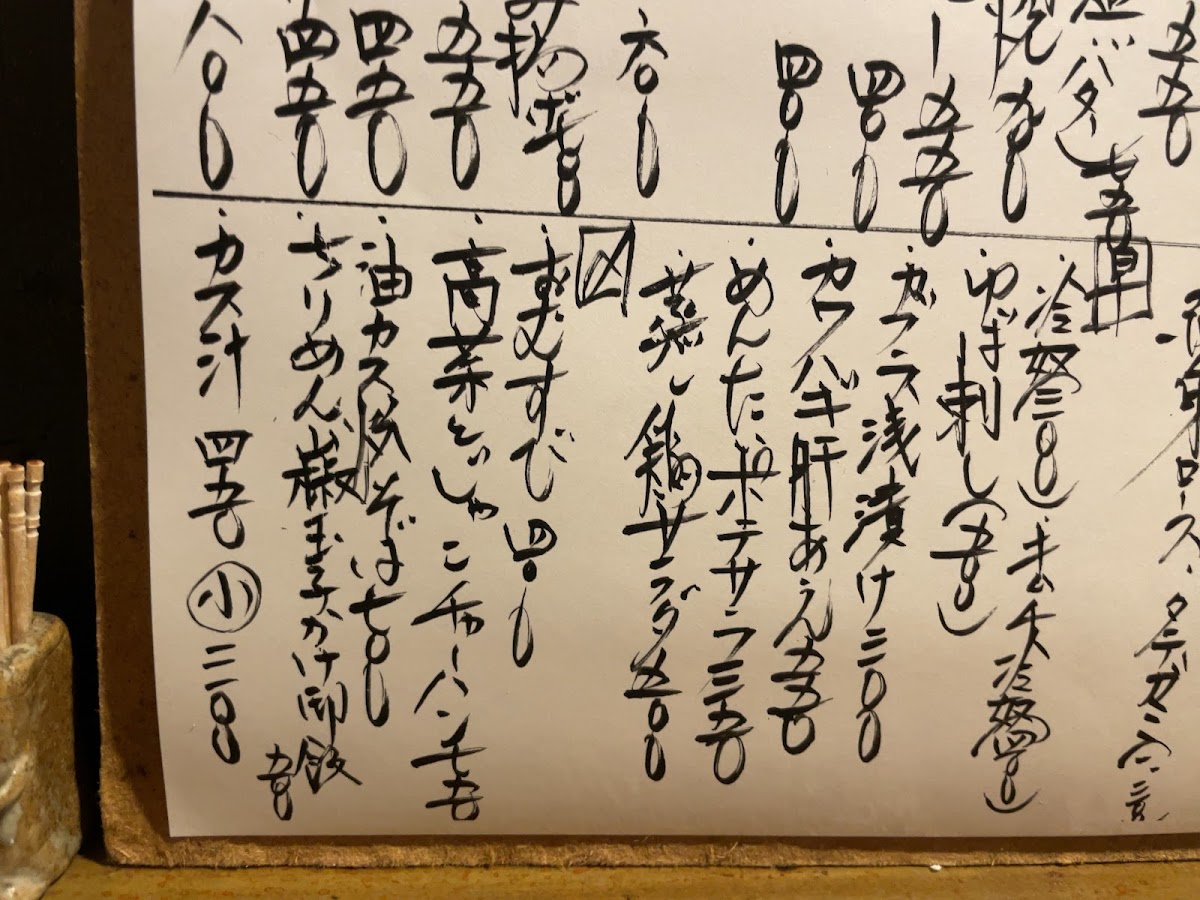 五五〇
塩バター 七五〇
焼 九〇〇
ー 五五〇
四〇〇
四〇〇
六〇〇
み揚
五五〇
四五〇
四五〇
八〇〇
ロース、タテガミ
早
・冷奴三〇〇)・キムチ冷奴四〇〇)
・ゆば刺し(五〇〇)
・カブラ浅漬け三〇〇
・カワハギ肝あえ五五〇
・めんたいポテサラ三五〇
・蒸し鶏サラダ五〇〇
〆
・おむすび 四〇〇
・高菜とじゃこチャーハン七五〇
・油カス炒そば七〇〇
・ちりめん山椒玉子かけ御飯 五〇〇
・カス汁 四五〇 小 三〇〇